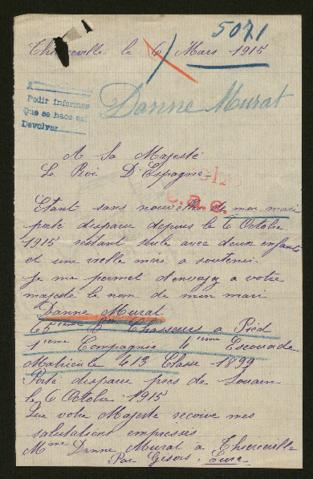 5071
le 6 Mars 1915
Pedir informes
que se hace sal
Devolver
Danne Murat
A Sa Majesté
Le Roi D'Espagne
Etant sans nouvelle de mon mari
porté disparu depuis le 6 Octobre
1915 restant seule avec deux enfants
et une vielle mère a soutenir
Je me permet d'envoyer a votre
majesté le nom de mon mari
Danne Murat
65 ième Chasseurs a Pied
1 ième Compagnie 4 ième Escouade
Matricule 413 Classe 1899
Porté disparu près de Souain
le 6 Octobre 1915
Que votre Majesté reçoive mes
salutations empressées
Mme Danne Murat a
Par Gisors Eure